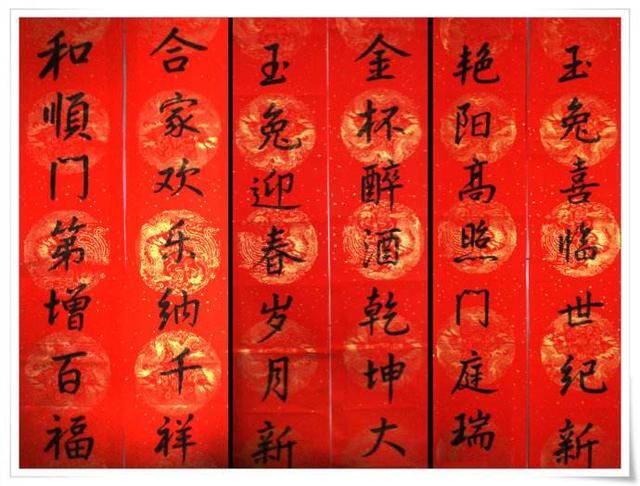 玉兔喜临世纪新
艳阳高照门庭瑞
金杯醉酒乾坤大
玉兔迎春岁月新
合家欢乐纳千祥
和順门第增百福